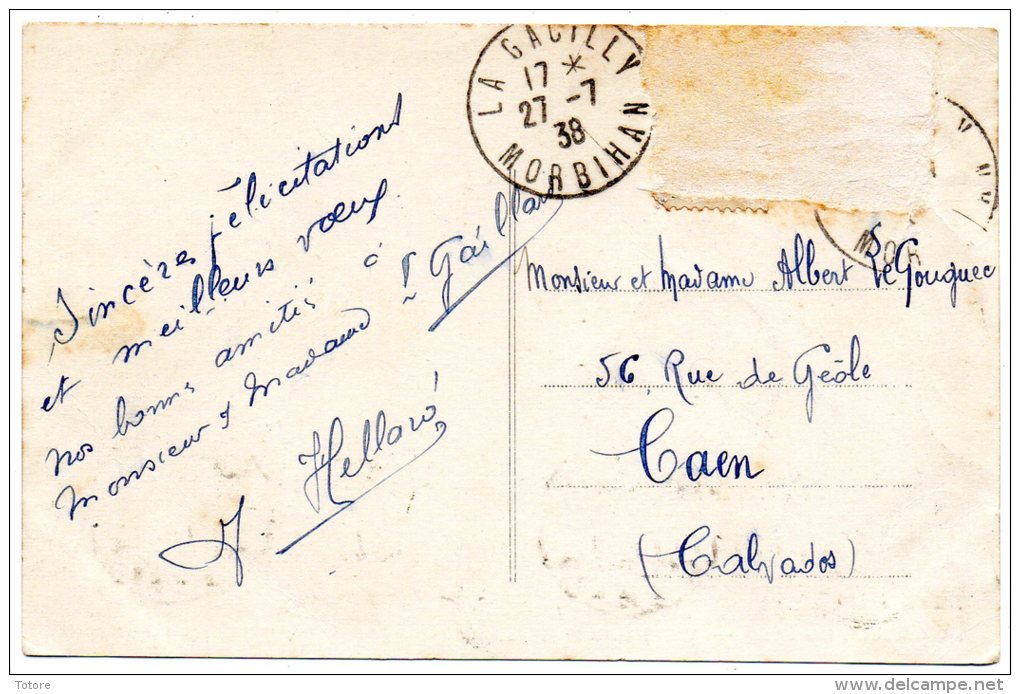 Sincères félicitations
et meilleurs vœux.
nos bonnes amitiés à
Monsieur & Madame Gaillard
A. Hellard
LA GACILLY
17 *
27 -7
38
MORBIHAN
Y
MOR
Monsieur et Madame Albert Le Gouguec
56, Rue de Geôle
Caen
(Calvados)
Totore
delcampe.net